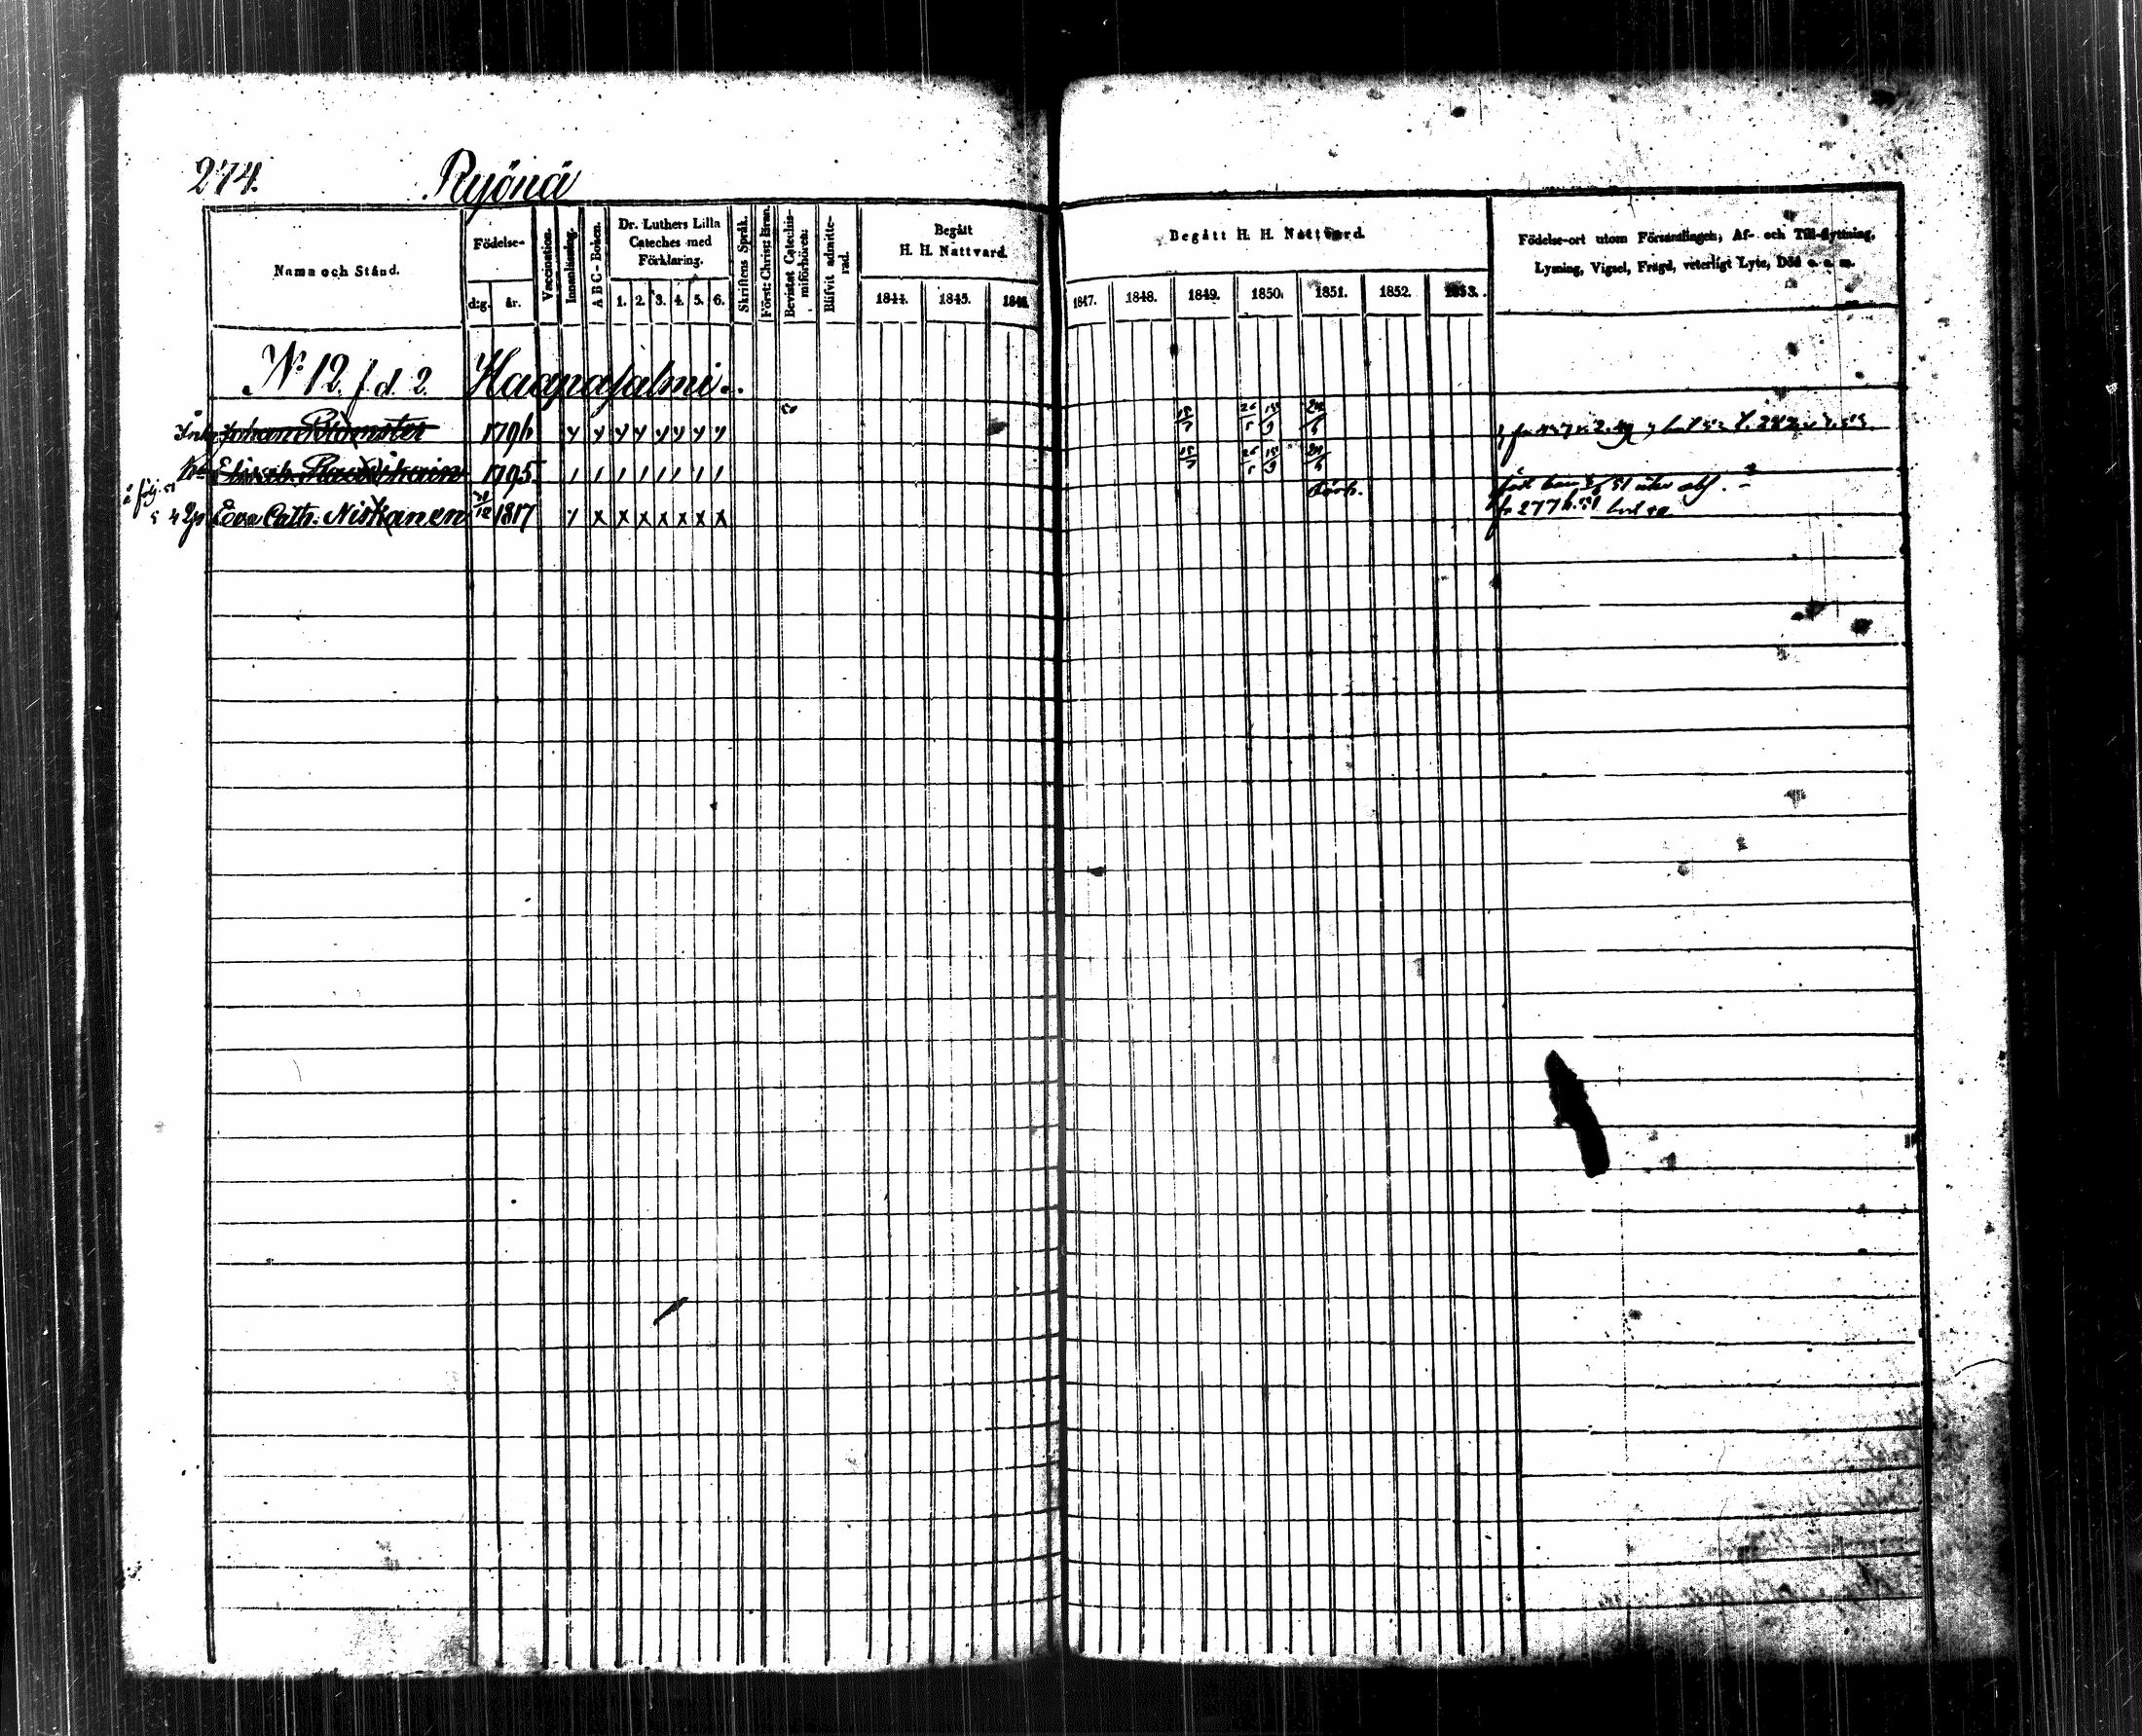 274. Ryönä
Namn och Stånd.
Födelse-
d:g. år.
Vaccination.
Innanläsning.
A B C-Boken.
Dr. Luthers Lilla
Cateches med
Förklaring.
1. 2. 3. 4. 5. 6.
Skriftens Språk.
Först: Christ: Eran.
Bevistat Catechis-
miförhören:
Blifvit admitte-
rad.
Begått
H. H. Nattvard.
1844. 1845. 1846.
Begått H. H. Nattvard.
1847. 1848. 1849. 1850. 1851. 1852. 1853.
Födelse-ort utom Församlingen, Af- och Till-flyttning,
Lysning, Vigsel, Frägd, veterligt Lyte, Död o. s. m.
N:o 12. f. d. 2. Haapasalmi.
Johan Blomster 1796
Elisab. 1795
Eva Cath. Niskanen 31/12 1817 fr 277